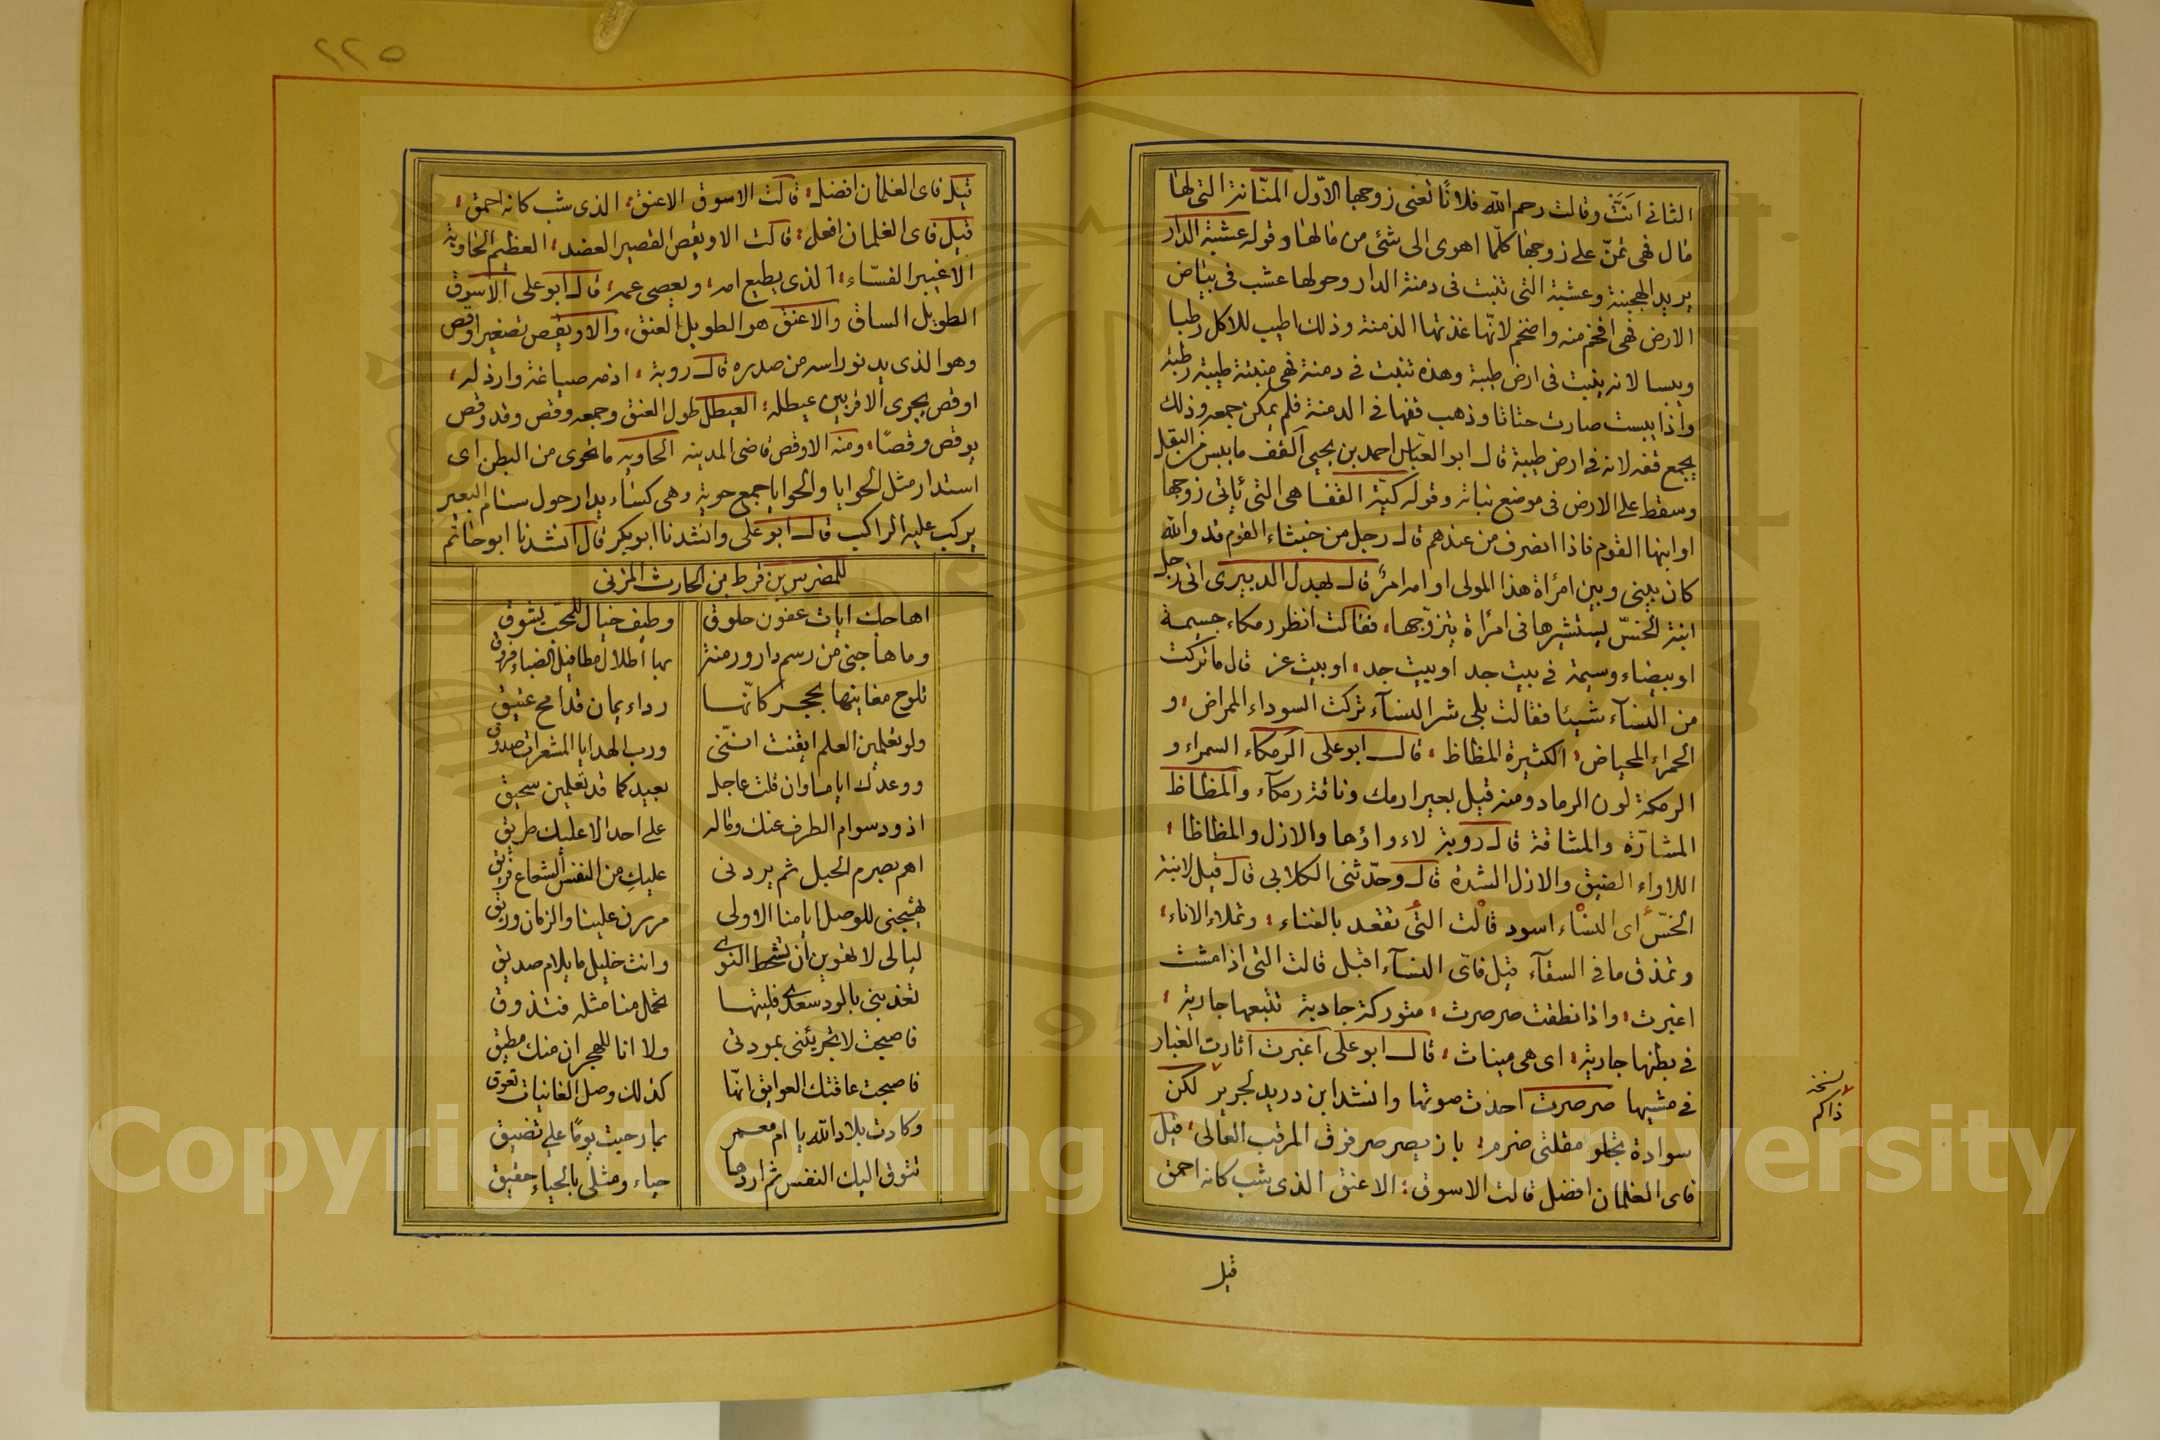 الثانى انَّتْ وقالت رحم الله فلانًا تعنى زوجها الاوّل المنّانة التى لها
مال فهى تمنّ على زوجها كلّما اهوى الى شئ من مالها وقوله عشبة الدار
يريد الهجينة وعشبة التى تنبت فى دمنة الدار وحولها عشب فى بياض
الارض فهى افخم منه واضخم لانّها غذتها الدمنة وذلك اطيب للاكل رطبا
ويبسا لانه ينبت فى ارض طيبة وهذه تنبت فى دمنة فهى منبتة طيبة رطبة
واذا يبست صارت حتاتا وذهب قفها فى الدمنة فلم يمكن جمعه وذلك
يجمع قفه لانه فى ارض طيبة قال ابو العبّاس احمد بن يحيى القف ما يبس من البقل
وسقط على الارض فى موضع نباته وقوله كيّة القفا هى التى يأتى زوجها
او ابنها القوم فاذا انصرف من عندهم قال رجل من خبثاء القوم قد والله
كان بينى وبين امرأة هذا المولى او امه امرٌ قال بهدل الدبيرى اتى رجل
ابنة الخسّ يستشيرها فى امرأة يتزوّجها، فقالت انظر رمكاء جسيمة
او بيضاء وسيمة فى بيت جد او بيت جد، او بيت عز قال ما تركت
من النسآء شيئا فقالت بلى شر النسآء تركت السوداء الممراض، و
الحمراء المحياض، الكثيرة المظاظ، قال ابو على الرمكاء السمراء و
الرمكة لون الرماد ومنه قيل بعير ارمك وناقة رمكآء والمظاظ
المشارّة والمشاقة قال روبة لاءواؤها والازل والمظاظا،
اللاواء الضيق والازل الشدة قال وحدّثنى الكلابى قال قيل لابنة
الخسّ اى النساء اسود قالت التى تقعد بالفناء، وتملاء الاناء،
وتمذق ما فى السقآء قيل فاى النسآء افبل قالت التى اذا مشت
اغبرت، واذا نطقت صرصرت، متوركة جارية تتبعها جارية،
فى بطنها جارية، اى هى مبناث، قال ابو على اغبرت اثارت الغبار
فى مشيها صرصرت احدّت صوتها وانشد ابن دريد لجرير لكن
سوادة يجلو مقلتى ضرم، باز يصرصر فوق المرقب العالى، قيل
فاى الغلمان افضل قالت الاسوق، الاعنق الذى شب كانه احمق
نسخة
ذاكم
قيل
٢٢٥
قيل فاى الغلمان افضل، قالت الاسوق الاعنق، الذى شب كانه احمق،
قيل فاى الغلمان افعل، قالت الاويقص القصير العضد، العظيم الحاوية
الاغيبر الفسّاء، الذى يطيع امه، ويعصى عمه، قال ابو على الاسوق
الطويل الساق والاعنق هو الطويل العنق، والاويقص تصغير اوقص
وهو الذى يدنو راسه من صدره قال روبة، ادمه صياغة وارذله،
اوقص يخزى الاقربين عيطله، العيطل طول العنق وجمعه وقص وقد وقص
يوقص وقصًا، ومنه الاوقص قاضى المدينه الحاويه ما تحوى من البطن اى
استدار مثل الحوايا والحوايا جمع حوية وهى كساء يدار حول سنام البعير
يركب عليه الراكب قال ابو على وانشدنا ابو بكر قال انشدنا ابو حاتم
للمضرس بن قرط بن الحارث المزنى
اهاجك ايات عفون خلوق وطيف خيال للمحب يشوق
وما هاجنى من رسم دار ودمنة بها اطلال مطافيل الضباء فروق
تلوح مغانيها بحجر كانّها رداء يمان قد امح عتيق
ولو تعلمين العلم ايقنت انّنى ورب الهدايا المشعرات صدوق
ووعدك ايا ماوان قلت عاجل بعيد كما قد تعلمين سحيق
اذود سوام الطرف عنك وماله على احد الا عليك طريق
اهم بصرم الحبل ثم يردنى عليكِ من النفس الشعاع فريق
تهيّجنى للوصل ايامنا الاولى مررن علينا والزمان وريق
ليالى لا تهوين ان تشحط النوى وانت خليل ما يلام صديق
تعذبنى بالود سعدى فليتها تحمل منا مثله فتذوق
فاصبحت لا تجزينى بمودتى ولا انا للهجران منك مطيق
فاصبحت عاقتك العوايق انّها كذلك وصل الغانيات تعوق
وكادت بلاد الله يا ام معمر بما رحبت يومًا على تضيق
تتوق اليك النفس ثم اردها حياء ومثلى بالحياء حقيق
Copyright © King Saud University
1957